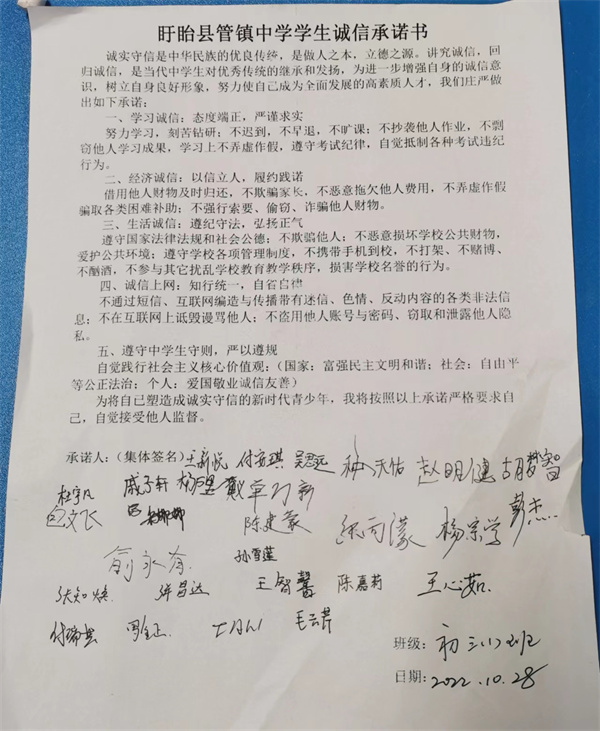 盱眙县管镇中学学生诚信承诺书
诚实守信是中华民族的优良传统，是做人之本，立德之源。讲究诚信，回
归诚信，是当代中学生对优秀传统的继承和发扬，为进一步增强自身的诚信意
识，树立自身良好形象，努力使自己成为全面发展的高素质人才，我们庄严做
出如下承诺：
一、学习诚信：态度端正，严谨求实
努力学习，刻苦钻研；不迟到，不早退，不旷课；不抄袭他人作业，不剽
窃他人学习成果，学习上不弄虚作假，遵守考试纪律，自觉抵制各种考试违纪
行为。
二、经济诚信：以信立人，履约践诺
借用他人财物及时归还，不欺骗家长，不恶意拖欠他人费用，不弄虚作假
骗取各类困难补助；不强行索要、偷窃、诈骗他人财物。
三、生活诚信：遵纪守法，弘扬正气
遵守国家法律法规和社会公德；不欺骗他人；不恶意损坏学校公共财物，
爱护公共环境；遵守学校各项管理制度，不携带手机到校，不打架、不赌博、
不酗酒，不参与其它扰乱学校教育教学秩序，损害学校名誉的行为。
四、诚信上网：知行统一，自省自律
不通过短信、互联网编造与传播带有迷信、色情、反动内容的各类非法信
息；不在互联网上诋毁谩骂他人；不盗用他人账号与密码、窃取和泄露他人隐
私。
五、遵守中学生守则，严以遵规
自觉践行社会主义核心价值观：（国家：富强民主文明和谐；社会：自由平
等公正法治；个人：爱国敬业诚信友善）
为将自己塑造成诚实守信的新时代青少年，我将按照以上承诺严格要求自
己，自觉接受他人监督。
承诺人：（集体签名）王新悦 付安琪 吴思远 天佑 赵明健 胡梦智
杜宇凡 戚子轩
包文飞 陈建豪 杨宗学 彭杰
俞永有 孙雪莲
张知焕 张昌达 王智馨 陈嘉莉 王心茹
付瑞芸 毛云芹
班级：初三(1)班
日期：2022.10.28